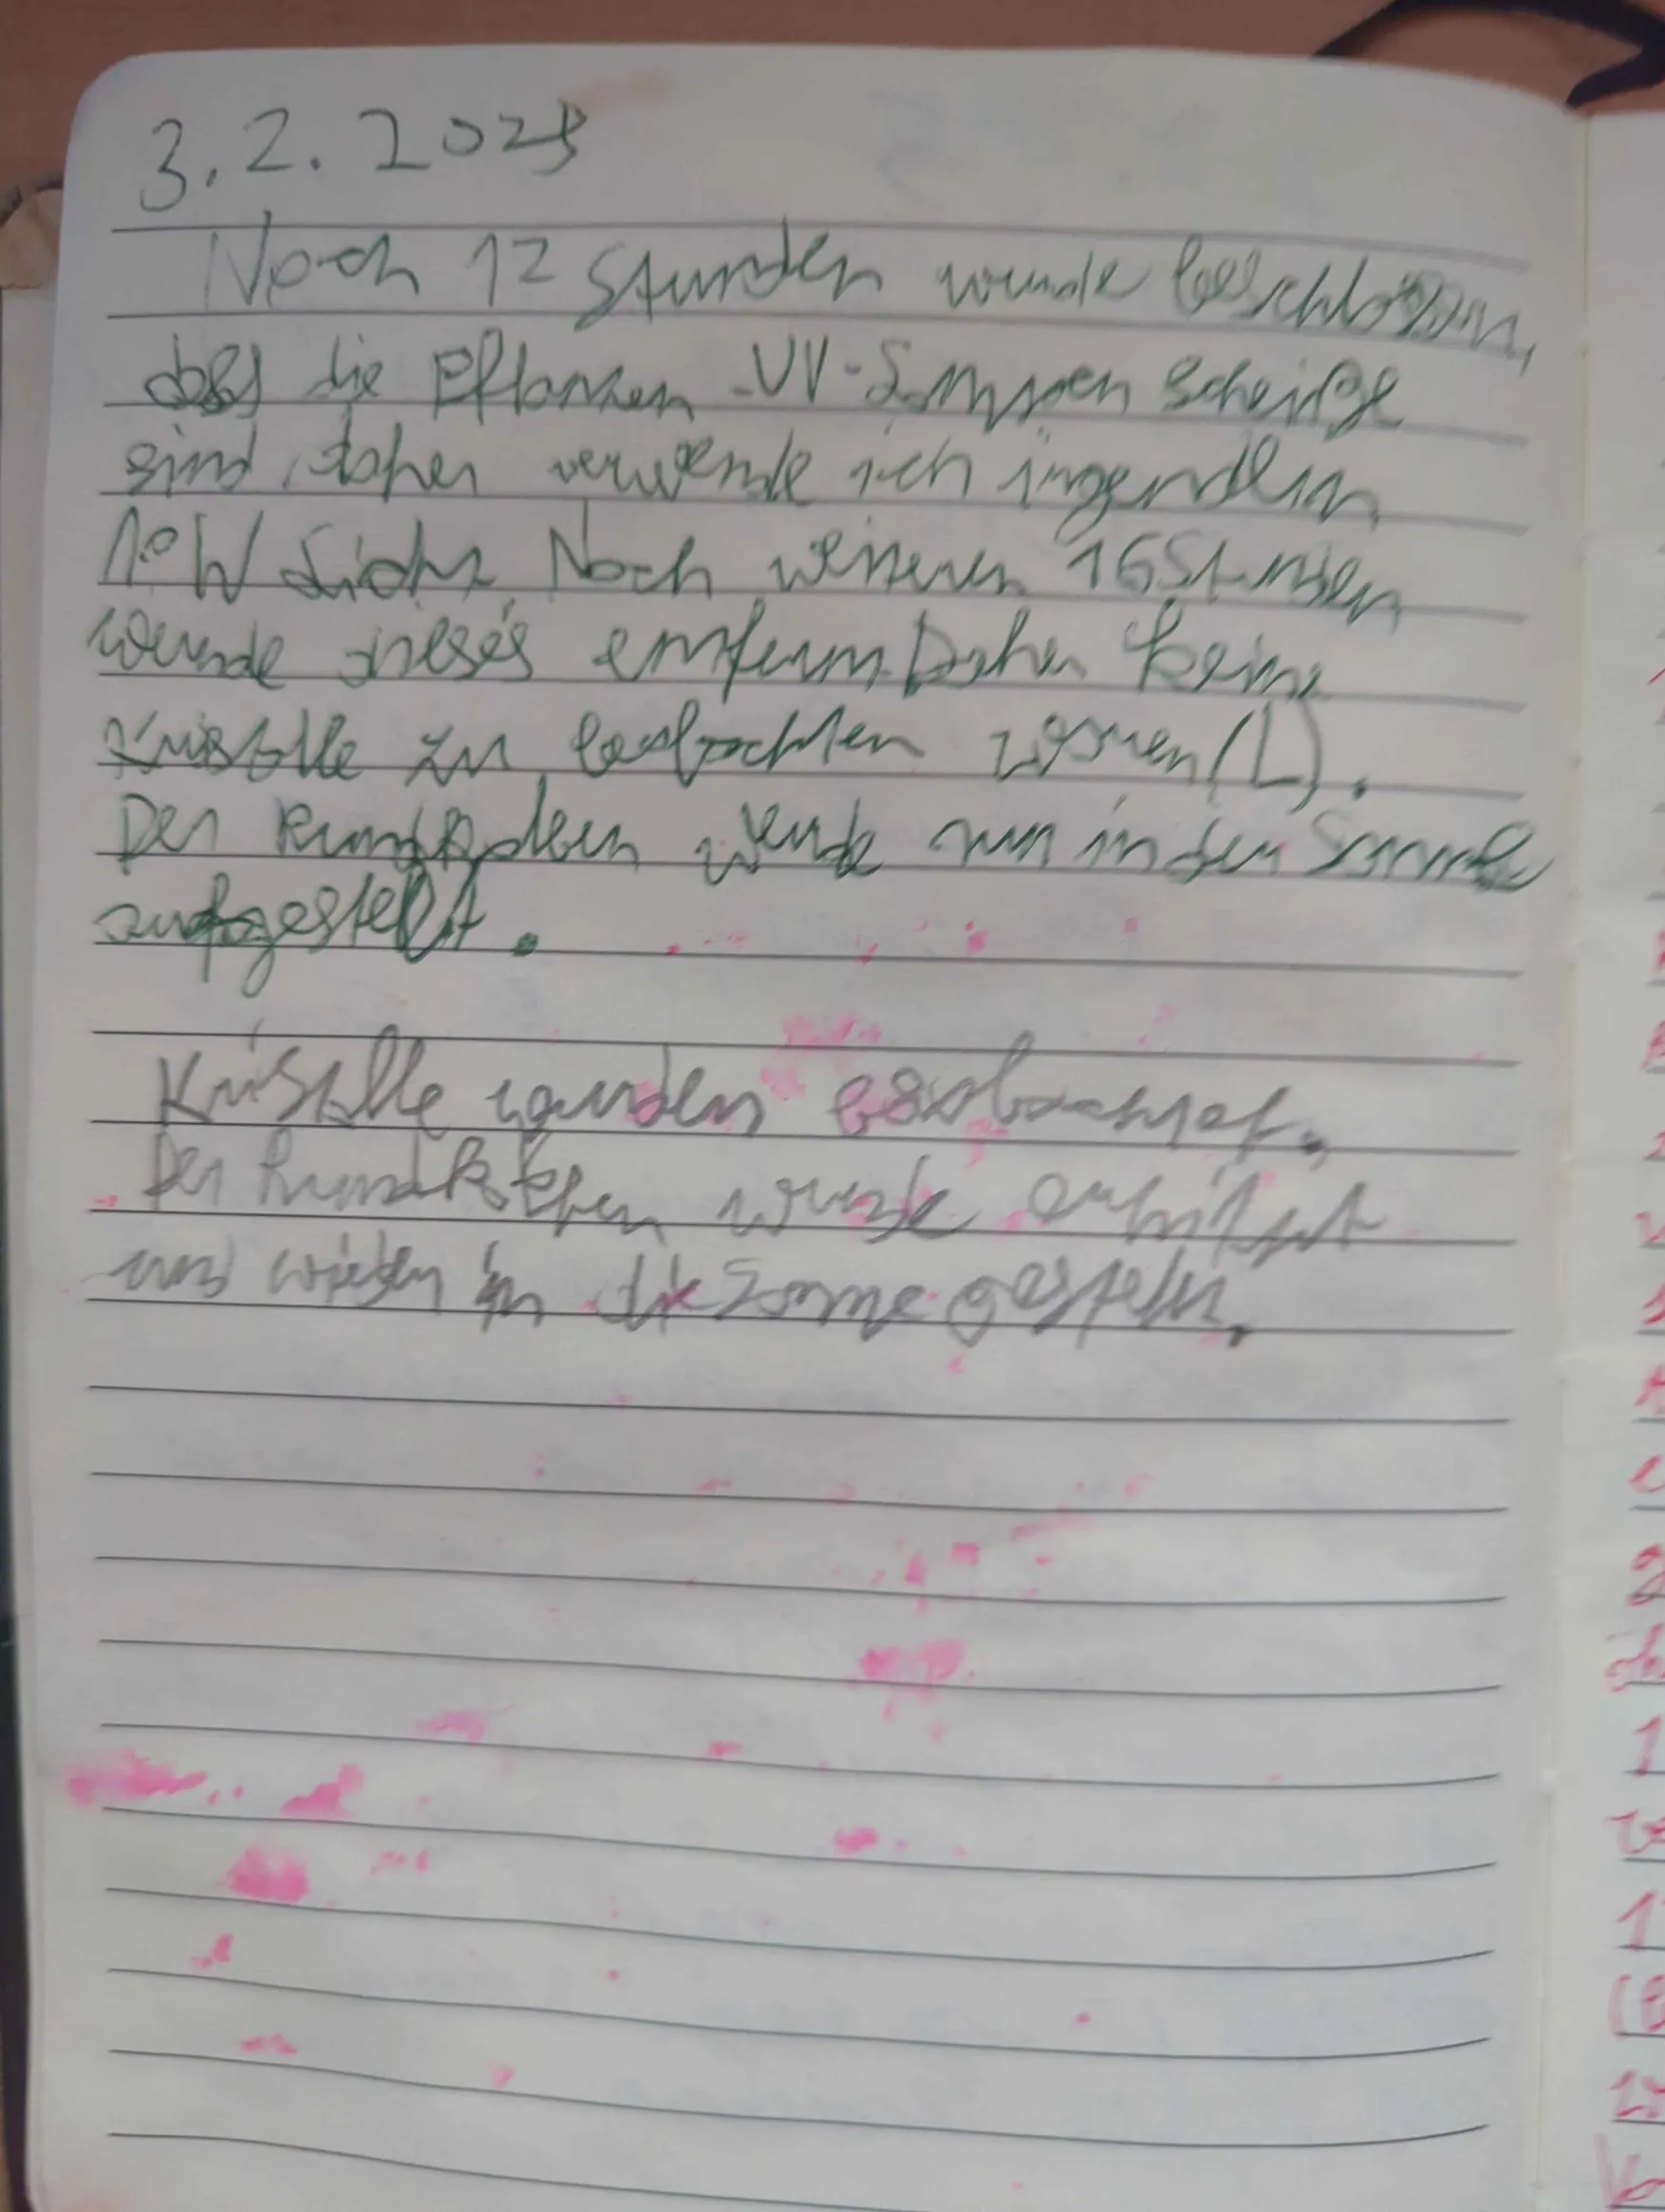 3.2.2025
Nach 12 Stunden wurde beschlossen,
dass die Pflanzen-UV-Lampen scheiße
sind, daher verwende ich irgendein
Licht. Nach weiteren 16 Stunden
wurde dieses entfernt. Daher keine
Kristalle zu beobachten waren (L).
Der Rundkolben wurde nun in der Sonne
aufgestellt.
Kristalle wurden beobachtet.
Der Rundkolben wurde erhitzt
und wieder in die Sonne gestellt.